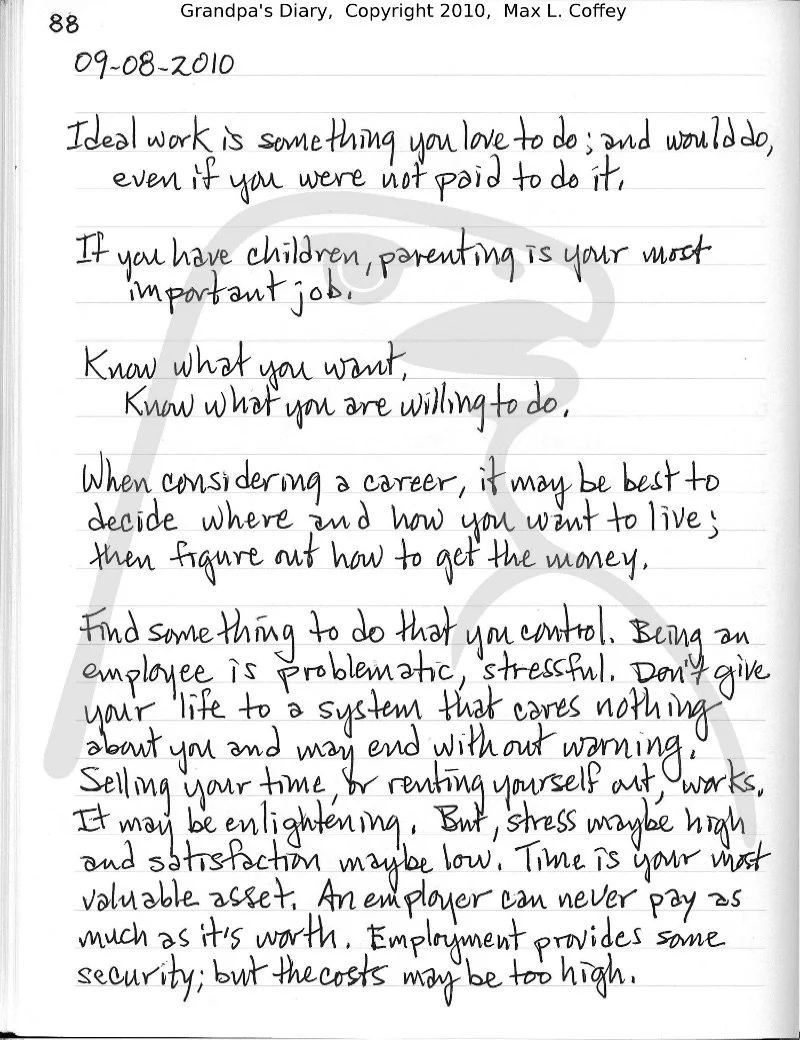 Grandpa's Diary, Copyright 2010, Max L. Coffey
88
09-08-2010
Ideal work is something you love to do; and would do,
even if you were not paid to do it.
If you have children, parenting is your most
important job.
Know what you want,
Know what you are willing to do.
When considering a career, it may be best to
decide where and how you want to live;
then figure out how to get the money.
Find something to do that you control. Being an
employee is problematic, stressful. Don't give
your life to a system that cares nothing
about you and may end without warning.
Selling your time, or renting yourself out, works.
It may be enlightening. But, stress maybe high
and satisfaction maybe low. Time is your most
valuable asset. An employer can never pay as
much as it's worth. Employment provides some
security; but the costs may be too high.